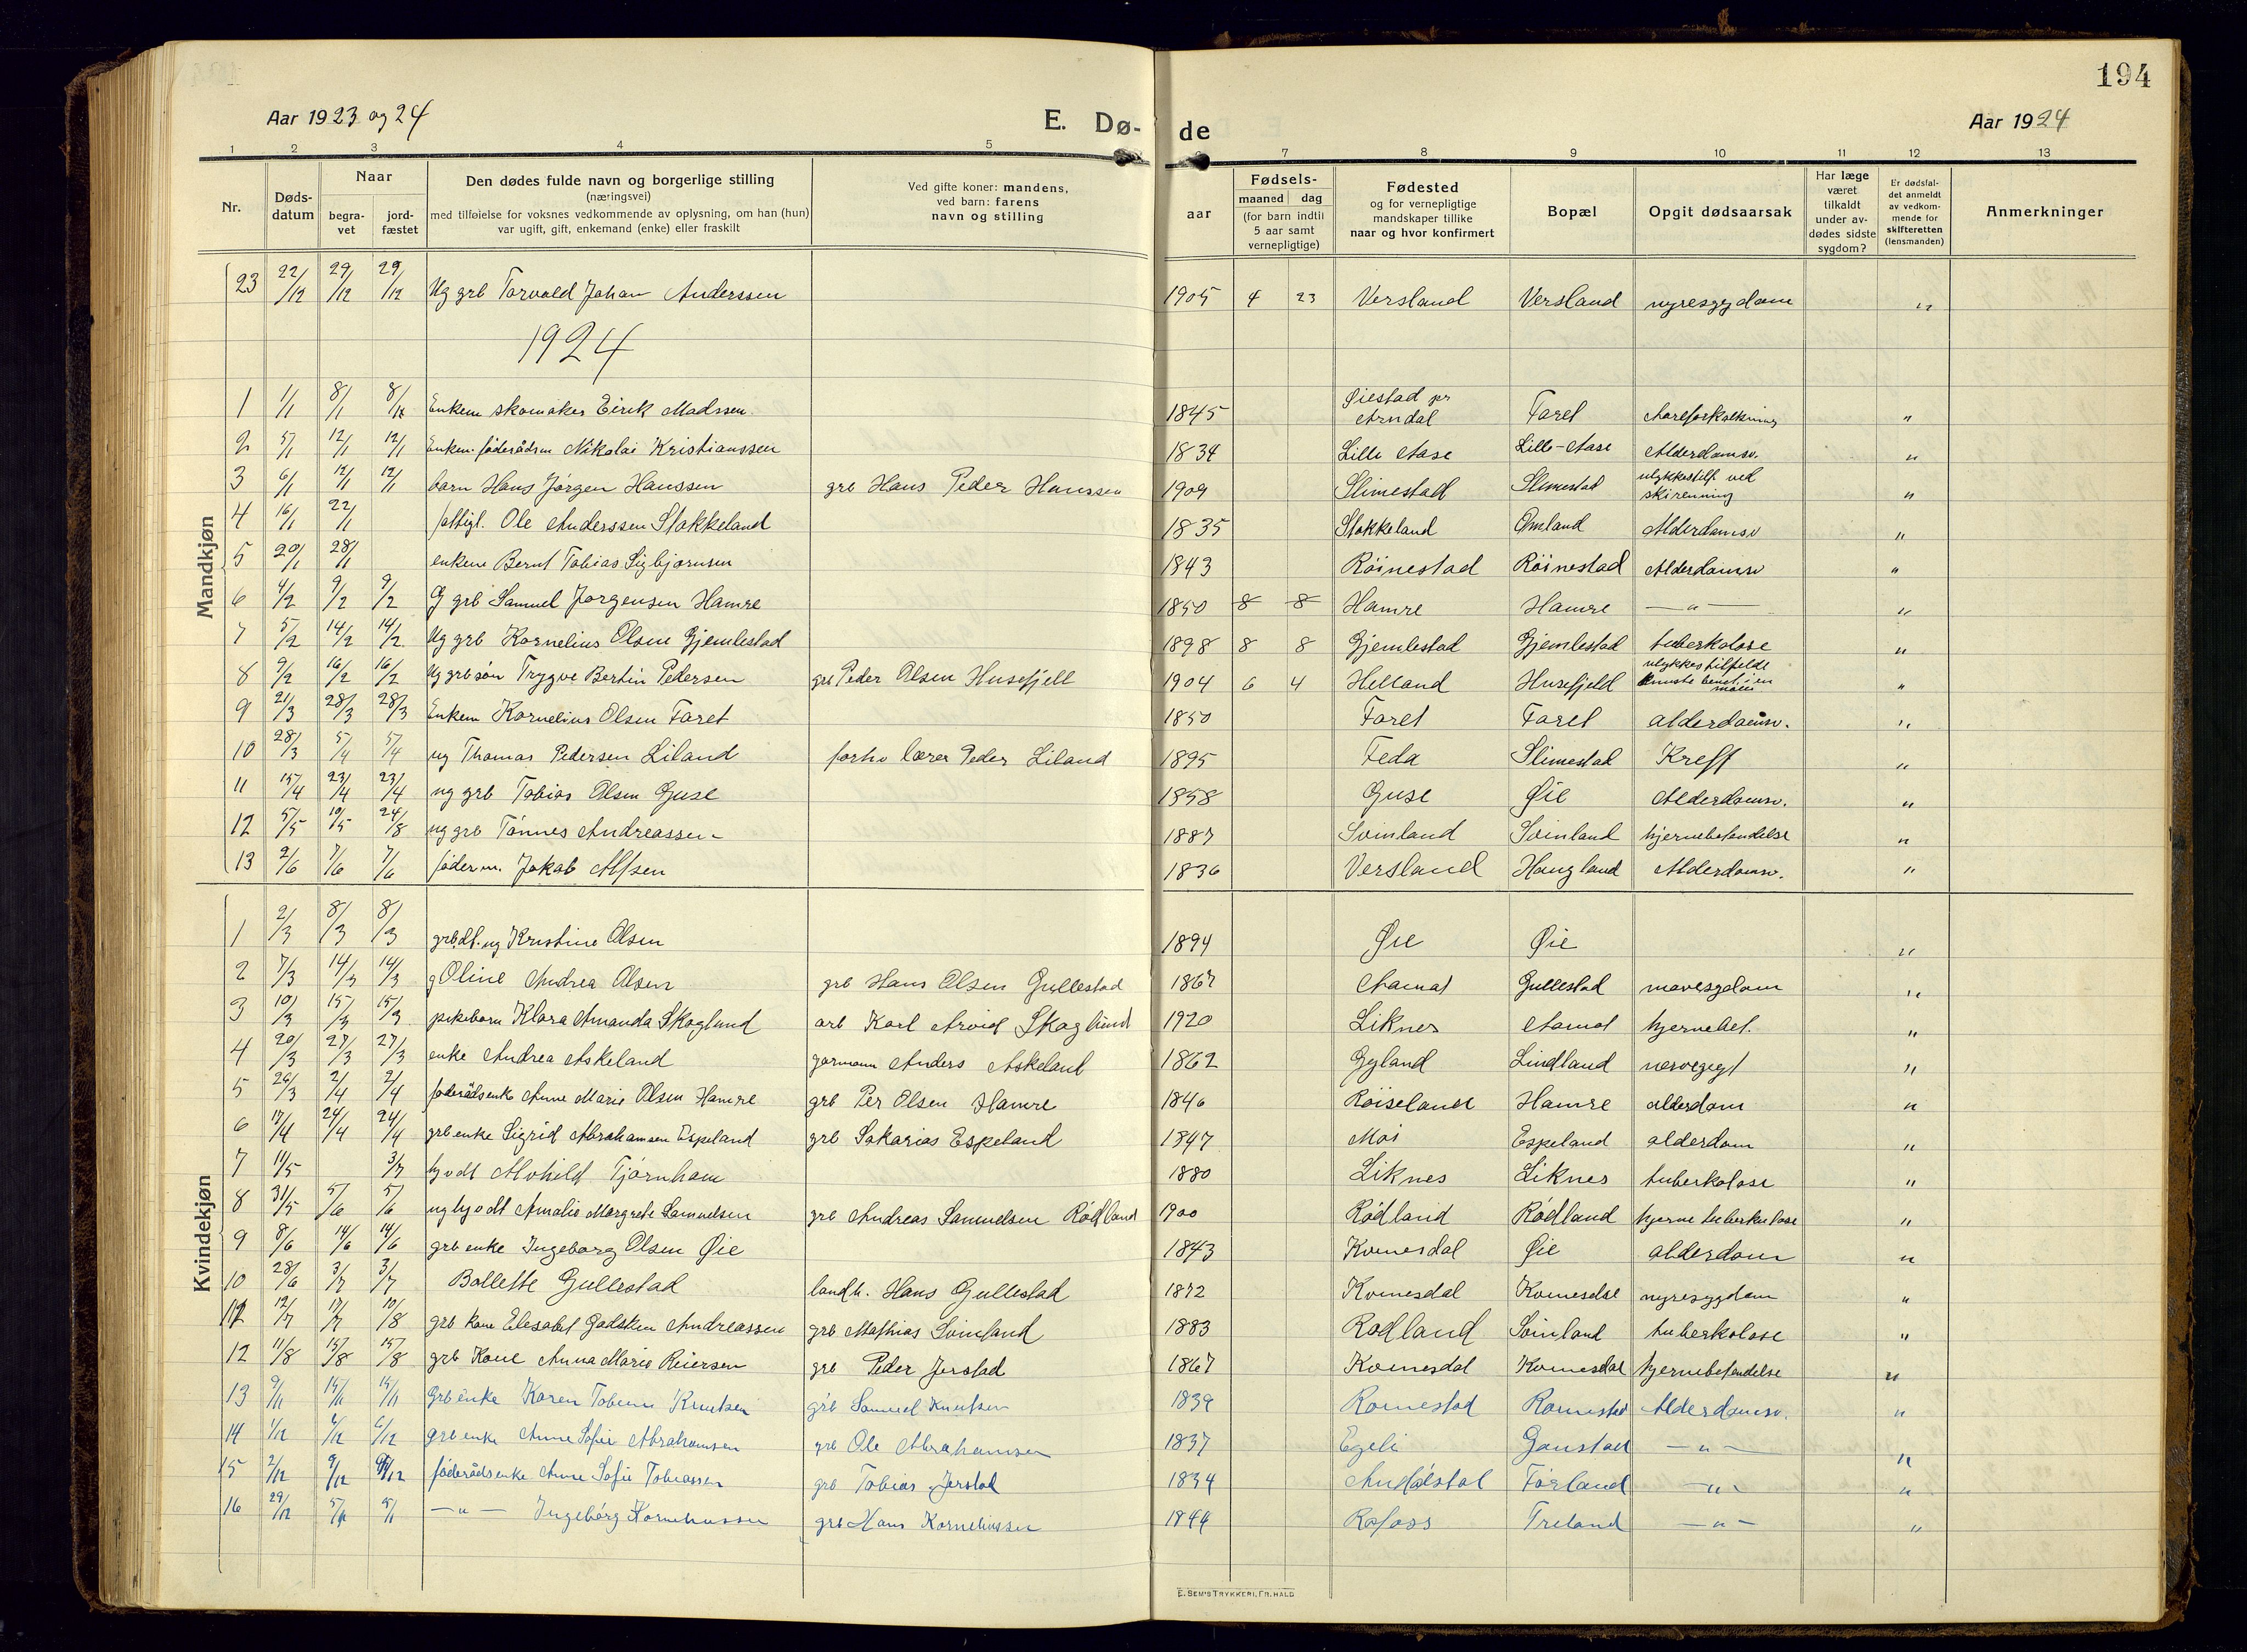 194
Aar 1923 og 24
E. Dø-
de
Aar 1924
1 2 3 4 5 7 8 9 10 11 12 13
Nr.
Døds-
datum
Naar
begra-
vet
jord-
fæstet
Den dødes fulde navn og borgerlige stilling
(næringsvei)
med tilføielse for voksnes vedkommende av oplysning, om han (hun)
var ugift, gift, enkemand (enke) eller fraskilt
Ved gifte koner: mandens,
ved barn: farens
navn og stilling
Fødsels-
aar
maaned dag
(for barn indtil
5 aar samt
vernepligtige)
Fødested
og for vernepligtige
mandskaper tillike
naar og hvor konfirmert
Bopæl
Opgit dødsaarsak
Har læge
været
tilkaldt
under av-
dødes sidste
sygdom?
Er dødsfal-
det anmeldt
av vedkom-
mende for
skifteretten
(lensmanden)
Anmerkninger
Mandkjøn
23 22/12 29/12 29/12 Ug grb Torvald Johan Anderssen 1905 4 23 Versland Versland nyresygdom "
1924
1 1/1 8/1 8/1 Enkem skomaker Eirik Madssen. 1845 Øiestad pr Arndal Faret Aareforkalkning "
2 5/1 12/1 12/1 Enkem. föderådsm Nikolai Kristianssen 1834 Lille Aase Lille-Aase Alderdomsv. "
3 6/1 12/1 12/1 barn Hans Jørgen Hanssen grb Hans Peder Hanssen 1909 Slimestad Slimestad ulykkestilf. ved skirenning "
4 16/1 22/1 fattigl. Ole Anderssen Stokkeland 1835 Stokkeland Omland Alderdomsv "
5 20/1 28/1 enkem Bernt Tobias Sigbjørnsen 1843 Röinestad Röinestad Alderdomsv "
6 4/2 9/2 9/2 G grb Samuel Jørgensen Hamre 1850 8 8 Hamre Hamre — " — "
7 5/2 14/2 14/2 Ug grb Kornelius Olsen Gjemlestad 1898 8 8 Gjemlestad Gjemlestad tuberkolose "
8 9/2 16/2 16/2 Ug grb søn Trygve Bertin Pedersen grb Peder Olsen Husefjell 1904 6 4 Helland Husefjeld ulykkestilfelde "
9 21/3 28/3 28/3 Enkem Kornelius Olsen Faret 1850 Faret Faret alderdomsv. "
10 28/3 5/4 5/4 ug Thomas Pedersen Liland forhv lærer Peder Liland 1895 Feda Slimestad Kreft "
11 15/4 23/4 23/4 ug grb Tobias Olsen Guse 1858 Guse Øie Alderdomsv. "
12 5/5 10/5 24/8 ug grb Tönnes Andreassen 1887 Svinland Svinland hjernebetendelse "
13 2/6 7/6 7/6 föderm. Jakob Alfsen 1836 Versland Haugland Alderdomsv. "
Kvindekjøn
1 2/3 8/3 8/3 grb.dt. ug Kristine Olsen 1894 Øie Øie "
2 7/3 14/3 14/3 g Oline Andrea Olsen grb Hans Olsen Gullestad 1867 Aamot Gullestad mavesygdom "
3 10/3 15/3 15/3 pikebarn Klara Amanda Skoglund arb Karl Arvid Skoglund 1920 Liknes Aamot hjernebet. "
4 20/3 27/3 27/3 enke Andrea Askeland Anders Askeland 1862 Gyland Lindland nervegigt "
5 26/3 2/4 2/4 föderådsenke Anne Marie Olsen Hamre grb Per Olsen Hamre 1846 Röiseland Hamre alderdom "
6 17/4 24/4 24/4 grb enke Sigrid Abrahamsen Espeland grb Sakarias Espeland 1847 Moi Espeland alderdom "
7 11/5 3/7 Alvhild Tjørnhom 1880 Liknes Liknes tuberkolose "
8 31/5 5/6 5/6 ug Amalie Margrete Samuelsen grb Andreas Samuelsen Rödland 1900 Rödland Rödland hjerne tuberkulose "
9 8/6 14/6 14/6 grb enke Ingeborg Olsen Øie 1843 Kvinesdal Øie alderdom "
10 28/6 3/7 3/7 Bollette Gullestad landh. Hans Gullestad 1872 Kvinesdal nyresygdom "
11 12/7 17/7 10/8 grb kone Elesabet Andreassen grb Mathias Svinland 1883 Rödland Svinland tuberkolose "
12 11/8 15/8 15/8 grb Kone Anna Marie Reiersen grb Peder Jerstad 1867 Kvinesdal Kvinesdal hjernebetendelse "
13 9/11 15/11 15/11 Grb enke Karen Knutsen grb Samuel Knutsen 1839 Alderdomsv. "
14 1/12 6/12 6/12 grb enke Anne Sofie Abrahamsen grb Ole Abrahamsen 1837 Egeli — " — "
15 2/12 9/12 föderådsenke Anne Sofie Tobiassen grb Tobias Jerstad 1834 Förland — " — "
16 29/12 5/1 5/1 — " — Ingebörg Korneliussen grb Hans Korneliussen 1844 Rafoss Treland — " — "
E. SEM'S TRYKKERI, FR. HALD